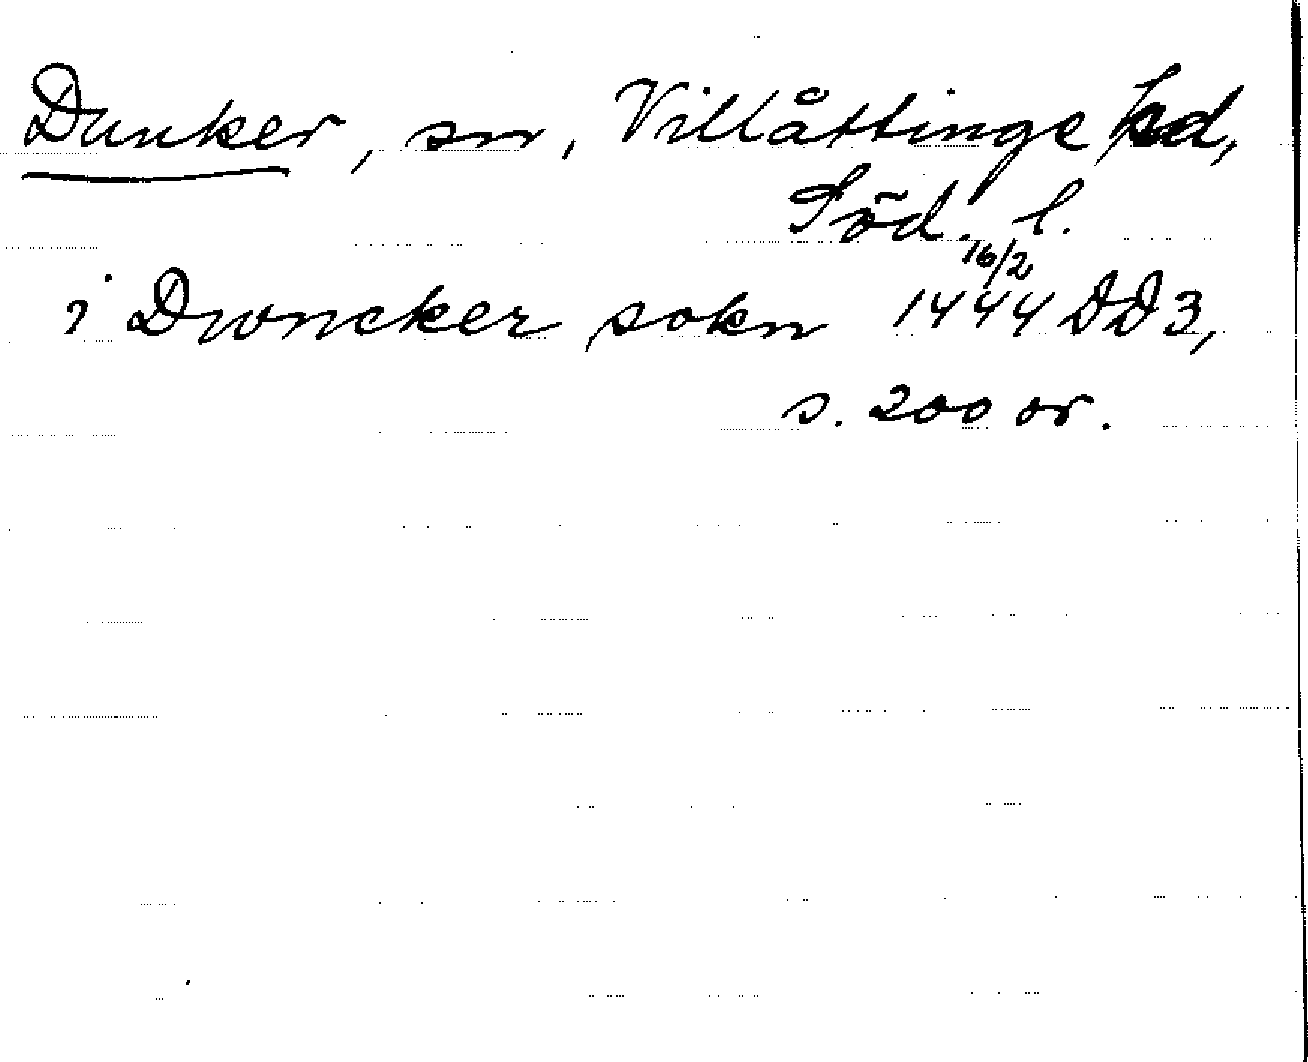 Dunker, sn, Villåttinge hd,
Söd. l.
i Dwncker sokn 16/2 1444 DD 3,
s. 200 or.